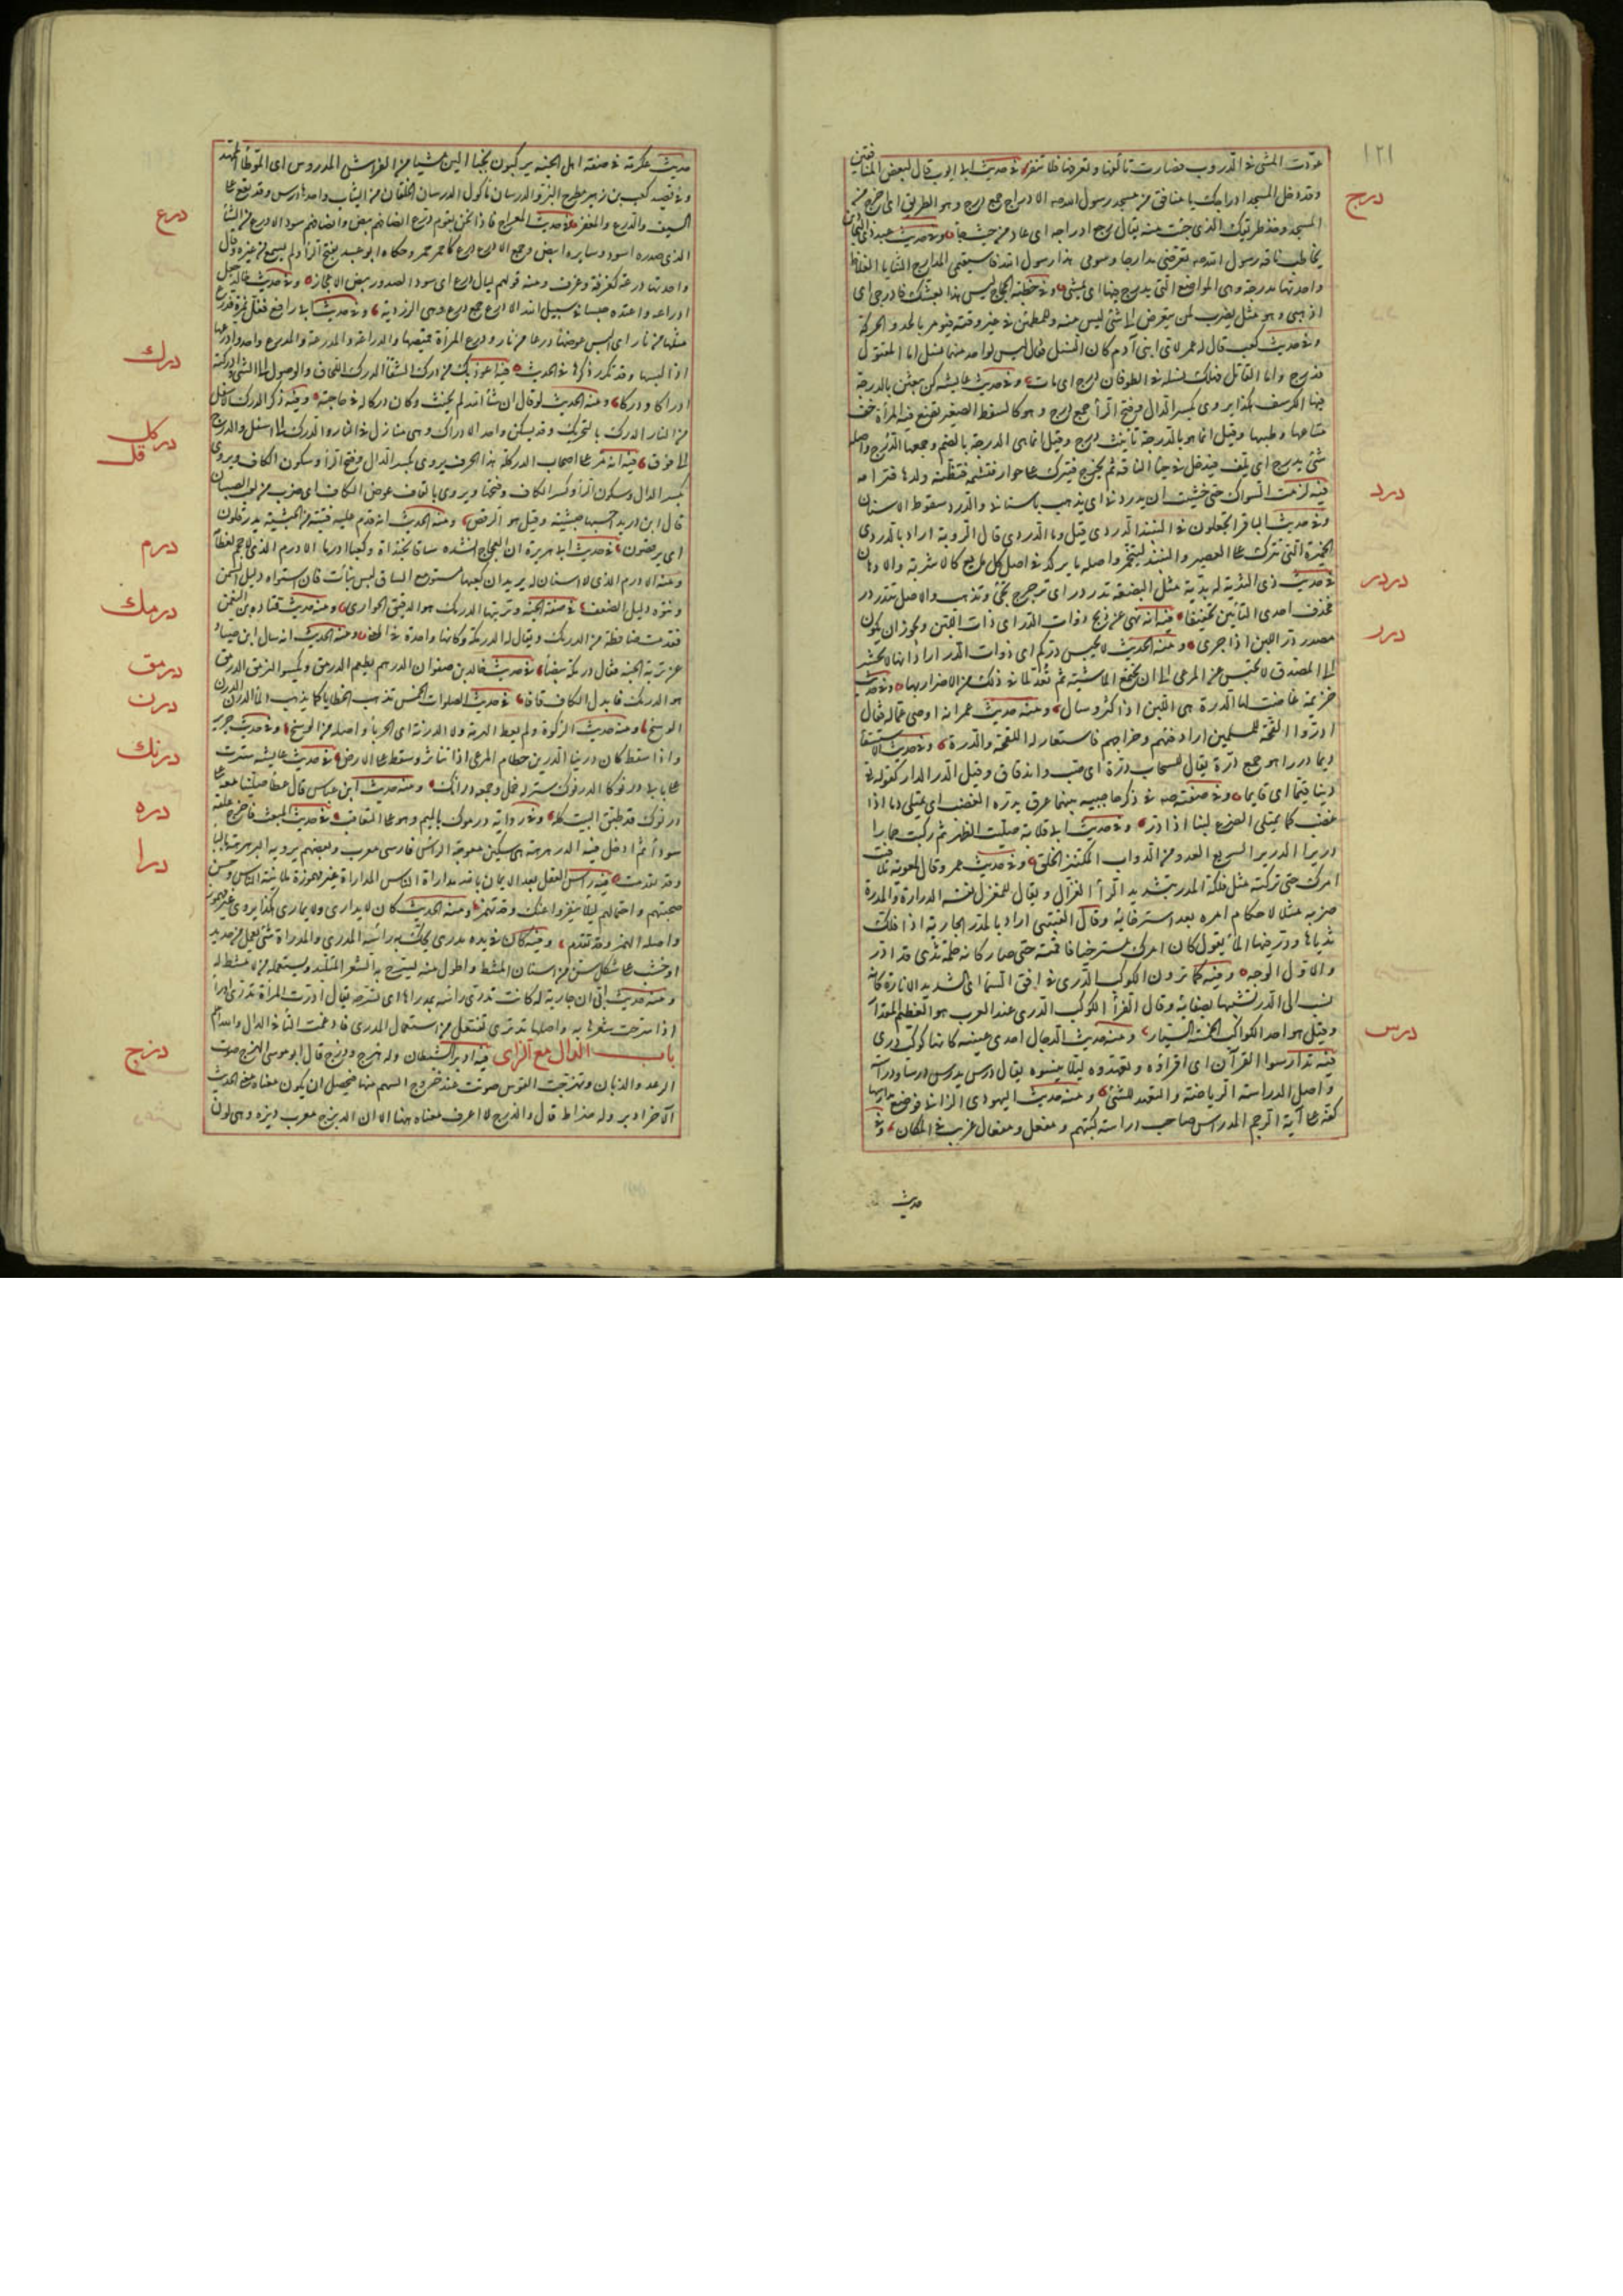 ١٢١
عودت المشى فى الدروب فصارت تألفها وتعرفها فلا تنفر وفى حديث ابى ايوب قال لبعض المنافقين
درج
وقد دخل المسجد ادراجك يا منافق من مسجد رسول الله صلعم الادراج جمع درج وهو الطريق اى اخرج من
المسجد وخذ طريقك الذى جئت منه يقال رجع ادراجه اى عاد من حيث جاء ومنه حديث عبد الله ذى البجادين
يخاطب ناقة رسول الله صلعم تعرضى مدارجا وسومى هذا رسول الله فاستقيمى المدارج الثنايا الغلاظ
واحدتها مدرجة وهى المواضع التى يدرج فيها اى يمشى وفى خطبة الحجاج ليس هذا بعشك فادرجى اى
اذهبى وهو مثل يضرب لمن يتعرض الى شئ ليس منه وللمطمئن فى غير وقته فيؤمر بالجد والحركة
وفى حديث كعب قال له عمر لاى ابنى آدم كان النسل فقال ليس لواحد منهما نسل اما المقتول
فدرج واما القاتل فهلك نسله فى الطوفان درج اى مات وفى حديث عايشة كن يبعثن بالدرجة
فيها الكرسف هكذا يروى بكسر الدال وفتح الرأ جمع درج وهو كالسفط الصغير تضع فيه المرأة خف
متاعها وطيبها وقيل انما هو بالدرجة تأنيث درج وقيل انما هى الدرجة بالضم وجمعها الدرج واصله
شئ يدرج اى يلف فيدخل فى حيا الناقة ثم يخرج فيترك على حوار فتشمه فتظنه ولدها فترأمه
درد
فيه لزمت السواك حتى خشيت ان يدردنى اى يذهب باسنانى والدرد سقوط الاسنان
وفى حديث الباقر اتجعلون فى النبيذ الدردى قيل وما الدردى قال الروبة اراد بالدردى
الخميرة التى تترك على العصير والنبيذ ليتخمر واصله ما يركد فى اصل كل مايع كالاشربة والادهان
دردر
فى حديث ذى الثدية له يدية مثل البضعة تدردر اى ترجرج تجئ وتذهب والاصل تتدردر
درر
فحذف احدى التائين تخفيفا فيه انه نهى عن ذبح ذوات الدر اى ذات اللبن ويجوز ان يكون
مصدر در اللبن اذا جرى ومنه الحديث لا يحبس دركم اى ذوات الدر اراد انها لا تحشر
الى المصدق ولا تحبس عن المرعى الى ان تجتمع الماشية ثم تعد لما فى ذلك من الاضرار بها وفى حديث
خزيمة غاضت لها الدرة هى اللبن اذا كثر وسال ومنه حديث عمر انه اوصى عماله فقال
ادروا لقحة المسلمين اراد فيئهم وخراجهم فاستعار له اللقحة والدرة وفى حديث الاستسقا
ديما دررا هو جمع درة يقال للسحاب درة اى صب واندقاق وقيل الدرر الدار كقوله تعالى
دينا قيما اى قايما وفى صفته صلعم فى ذكر حاجبيه بينهما عرق يدره الغضب اى يمتلى دما اذا
غضب كما يمتلى الضرع لبنا اذا در وفى حديث ابى قلابة صليت الظهر ثم ركبت حمارا
دريرا الدرير السريع العدو من الدواب المكتنز الخلق وفى حديث عمرو قال لمعوية تلافيت
امرك حتى تركته مثل فلكة المدر بتشديد الرأ الغزال ويقال للمغزل نفسه الدرارة والمدرة
ضربه مثلا لاحكام امره بعد استرخائه وقال القتيبى اراد بالمدر الجارية اذا فلك
ثدياها ودر فيهما المأ يقول كان امرك مسترخيا فاقمته حتى صار كانه حلمة ثدى قد ادر
والاول الوجه وفيه كما ترون الكوكب الدرى فى افق السمأ اى الشديد الانارة كانه
نسب الى الدر تشبيها بصفائه وقال الفرأ الكوكب الدرى عند العرب هو العظيم المقدار
وقيل هو احد الكواكب الخمسة السيارة ومنه حديث الدجال احدى عينيه كانها كوكب درى
درس
فيه تدارسوا القرآن اى اقرؤه وتعهدوه ليلا تنسوه يقال درس يدرس درسا ودراسة
واصل الدراسة الرياضة والتعهد للشئ ومنه حديث اليهودى الزانى فوضع مدراسها
كفه على آية الرجم المدراس صاحب دراسة كتبهم ومفعل ومفعال غريب فى المكان وفى
حديث
حديث عكرمة فى صفة اهل الجنة يركبون نجبا الين مشيا من الفراش المدروس اى الموطأ الممهد
وفى قصيد كعب بن زهير مطرح البز والدرسان مأكول الدرسان الخلقان من الثياب واحدها درس وقد يقع على
درع
السيف والدرع والمغفر فى حديث المعراج فاذا نحن بقوم درع انصافهم بيض وانصافهم سود الادرع من الشأ
الذى صدره اسود وسايره ابيض وجمع الادرع درع كاحمر وحمر وحكاه ابو عبيد بفتح الرأ ولم يسمع من غيره وقال
واحدتها درعة كغرفة وغرف ومنه قولهم ليال درع اى سود الصدور بيض الاعجاز وفى حديث خالد جعل
ادراعه واعتده حبسا فى سبيل الله الادراع جمع درع وهى الزردية وفى حديث ابى رافع فغل نمرة فدرع
مثلها من نار اى البس عوضها درعا من نار ودرع المرأة قميصها والدراعة والمدرعة والمدرع واحد وادرعها
درك
اذا لبسها وقد تكرر ذكرها فى الحديث فيه اعوذ بك من درك الشقأ الدرك اللحاق والوصول الى الشئ ادركته
ادراكا ودركا ومنه الحديث لو قال ان شأ الله لم يحنث وكان دركا له فى حاجته وفيه ذكر الدرك الاسفل
من النار الدرك بالتحريك وقد يسكن واحد الادراك وهى منازل فى النار والدرك الى اسفل والدرج
دركل
قل
الى فوق فيه انه مر على اصحاب الدركلة هذا الحرف يروى بكسر الدال وفتح الرأ وسكون الكاف ويروى
بكسر الدال وسكون الرأ وكسر الكاف وفتحها ويروى بالقاف عوض الكاف اى ضرب من لعب الصبيان
قال ابن دريد احسبها حبشية وقيل هو الرقص ومنه الحديث انه قدم عليه فتية من الحبشة يدرقلون
درم
اى يرقصون فى حديث ابى هريرة ان العجاج انشده ساقا بخنداة وكعبا ادرما الادرم الذى لا حجم لعظامه
ومنه الادرم الذى لا اسنان له يريد ان كعبها مستو مع الساق ليس بناتئ فان استواءه دليل السمن
درمك
ونتوه دليل الضعف فى صفة الجنة وتربتها الدرمك هو الدقيق الحوارى ومنه حديث قتادة بن النعمن
فقدمت ضافطة من الدرمك ويقال له الدرمكة وكانها واحدة فى المعنى ومنه الحديث انه سال ابن صياد
درمق
عن تربة الجنة فقال درمكة بيضأ فى حديث خالد بن صفوان الدرهم يطعم الدرمق ويكسو النرمق الدرمق
درن
هو الدرمك فابدل الكاف قافا فى حديث الصلوات الخمس تذهب الخطايا كما يذهب المأ الدرن الدرن
الوسخ ومنه حديث الزكوة ولم يعط الهرمة ولا الدرنة اى الجربأ واصله من الوسخ وفى حديث جرير
درنك
واذا سقط كان درينا الدرين حطام المرعى اذا تناثر وسقط على الارض فى حديث عايشة سترت
على بابى درنوكا الدرنوك ستر له خمل وجمعه درانك ومنه حديث ابن عباس قال عطأ صلينا معه على
دره
درنوك قد طبق البيت كله وفى رواية درموك بالميم وهو على التعاقب فى حديث المبعث فاخرج علقة
سودأ ثم ادخل فيه الدرهرهة هى سكين معوجة الرأس فارسى معرب وبعضهم يرويه البرهرهة بالبا
درا
وقد تقدمت فيه رأس العقل بعد الايمان بالله مداراة الناس المداراة غير مهموزة ملاينة الناس وحسن
صحبتهم واحتمالهم ليلا ينفروا عنك وقد تهمز ومنه الحديث كان لا يدارى ولا يمارى هكذا يروى غير مهموز
واصله الهمز وقد تقدم وفيه كان فى يده مدرى يحك به رأسه المدرى والمدراة شئ يعمل من حديد
او خشب على شكل سن من اسنان المشط واطول منه يسرح به الشعر المتلبد ويستعمله من لا مشط له
ومنه حديث ابى ان جارية له كانت تدرى رأسه بمدراها اى تسرحه يقال ادرت المرأة تدرى ادرأ
اذا سرحت شعرها به واصلها تدترى تفتعل من استعمال المدرى فادغمت التأ فى الدال والله اعلم
دزج
باب الدال مع الزاى فيه ادبر الشيطان وله هزج ودزج قال ابو موسى الهزج صوت
الرعد والذبان وتهزجت القوس صوتت عند خروج السهم منها فيحتمل ان يكون معناه معنى الحديث
الآخر ادبر وله ضراط قال والدزج لا اعرف معناه ههنا الا ان الديزج معرب ديزه وهى لون